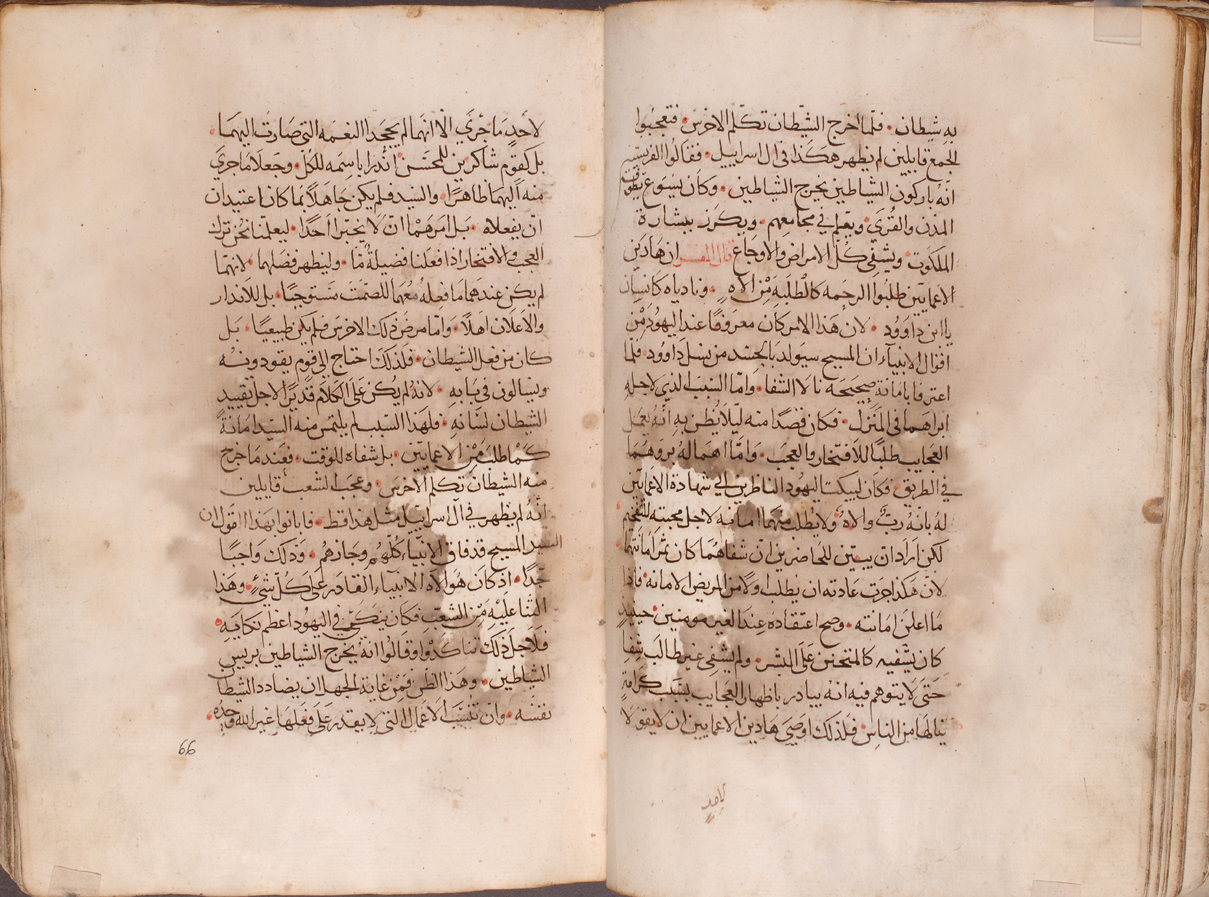 به شيطان • فلما اخرج الشيطان تكلم الاخرس • فتعجبوا
الجمع قايلين لم يظهر هكذا في ال اسراييل • فقالوا الفريسيه
انه باركون الشياطين يخرج الشياطين • وكان يسوع يطوف
المدن والقري • ويعلم في مجامعهم • ويكرز ببشارة
الملكوت • ويشفي كل الامراض والاوجاع قال المفسر ان هادين
الاعمايين طلبوا الرحمه كالطلبه من الاه • ونادياه كانسان
يا ابن داوود • لان هذا الامر كان معروفا عند اليهود من
اقوال الانبياء ان المسيح سيولد بالجسد من نسل داوود • فلما
اعترفا بامانة صحيحه نالا الشفا • واما السبب الذي لاجله
ابراهما في المنزل • فكان قصدا منه ليلا يظن به انه يعمل
العجايب طلبا للافتخار والعجب • واما اهماله بروهما
في الطريق • فكان ليبكت اليهود الناظرين في شهادة الاعمايين
له بانه رب والاه • ولا يطلب منهما امانه لاجل محبته للتفخيم
لكن اراد ان يبين للحاضرين ان شفاهما كان ثمر امانتهما •
لان هكذا جرت عادته ان يطلب اولا من المريض الامانه • فاذا
ما اعلن امانته • وصح اعتقاده عند الغير مومنين • حينيد
كان يشفيه كالمتحنن على البشر • ولم يشفي غير طالب شفا
حتى لا يتوهم فيه انه يبادر باظهار العجايب بسبب كرامة
ينالها من الناس • فلذلك اوصي هادين الاعمايين ان لا يقولا
لاحد
لاحد ما جري الا انهما لم يجحدا النعمه التي صارت اليهما •
بل كقوم شاكرين للمحسن انذرا باسمه للكل • وجعلا ما جري
منه اليهما ظاهرا • والسيد فلم يكن جاهلا بما كانا عتيدان
ان يفعلاه • بل امرهما ان لا يخبرا احدا • ليعلمنا نحن ترك
العجب والافتخار اذا فعلنا فضيلة ما • وليظهر فضلهما • لانهما
لم يكن عندهما ما فعله معهما للصمت مستوجبا • بل للانذار
والاعلان اهلا • واما مرض ذلك الاخرس فلم يكن طبيعيا • بل
كان من فعل الشيطان • فلذلك احتاج الي قوم يقودونه
ويسالون في بابه • لانه لم يكن على الكلام قديرا لاجل تقييد
الشيطان لسانه • فلهذا السبب لم يلتمس منه السيد امانة
كما طلب من الاعمايين • بل شفاه للوقت • فعند ما خرج
منه الشيطان تكلم الاخرس • وعجب الشعب قايلين
انه لم يظهر في ال اسراييل مثل هذا قط • فابانوا بهذا القول ان
السيد المسيح قد فاق الانبياء كلهم وجازهم • وذلك واجبا
جدا • اذ كان هو الاه الانبياء القادر على كل شيء • وهذا
الثنا عليه من الشعب فكان ينكي في اليهود اعظم نكايه •
فلاجل ذلك وقالوا انه يخرج الشياطين بريس
الشياطين • وهذا الظن فمن غاية الجهل ان يضادد الشيطا
نفسه • وان تنسب الاعمال التي لا يقدر على فعلها غير الله وحده •
66